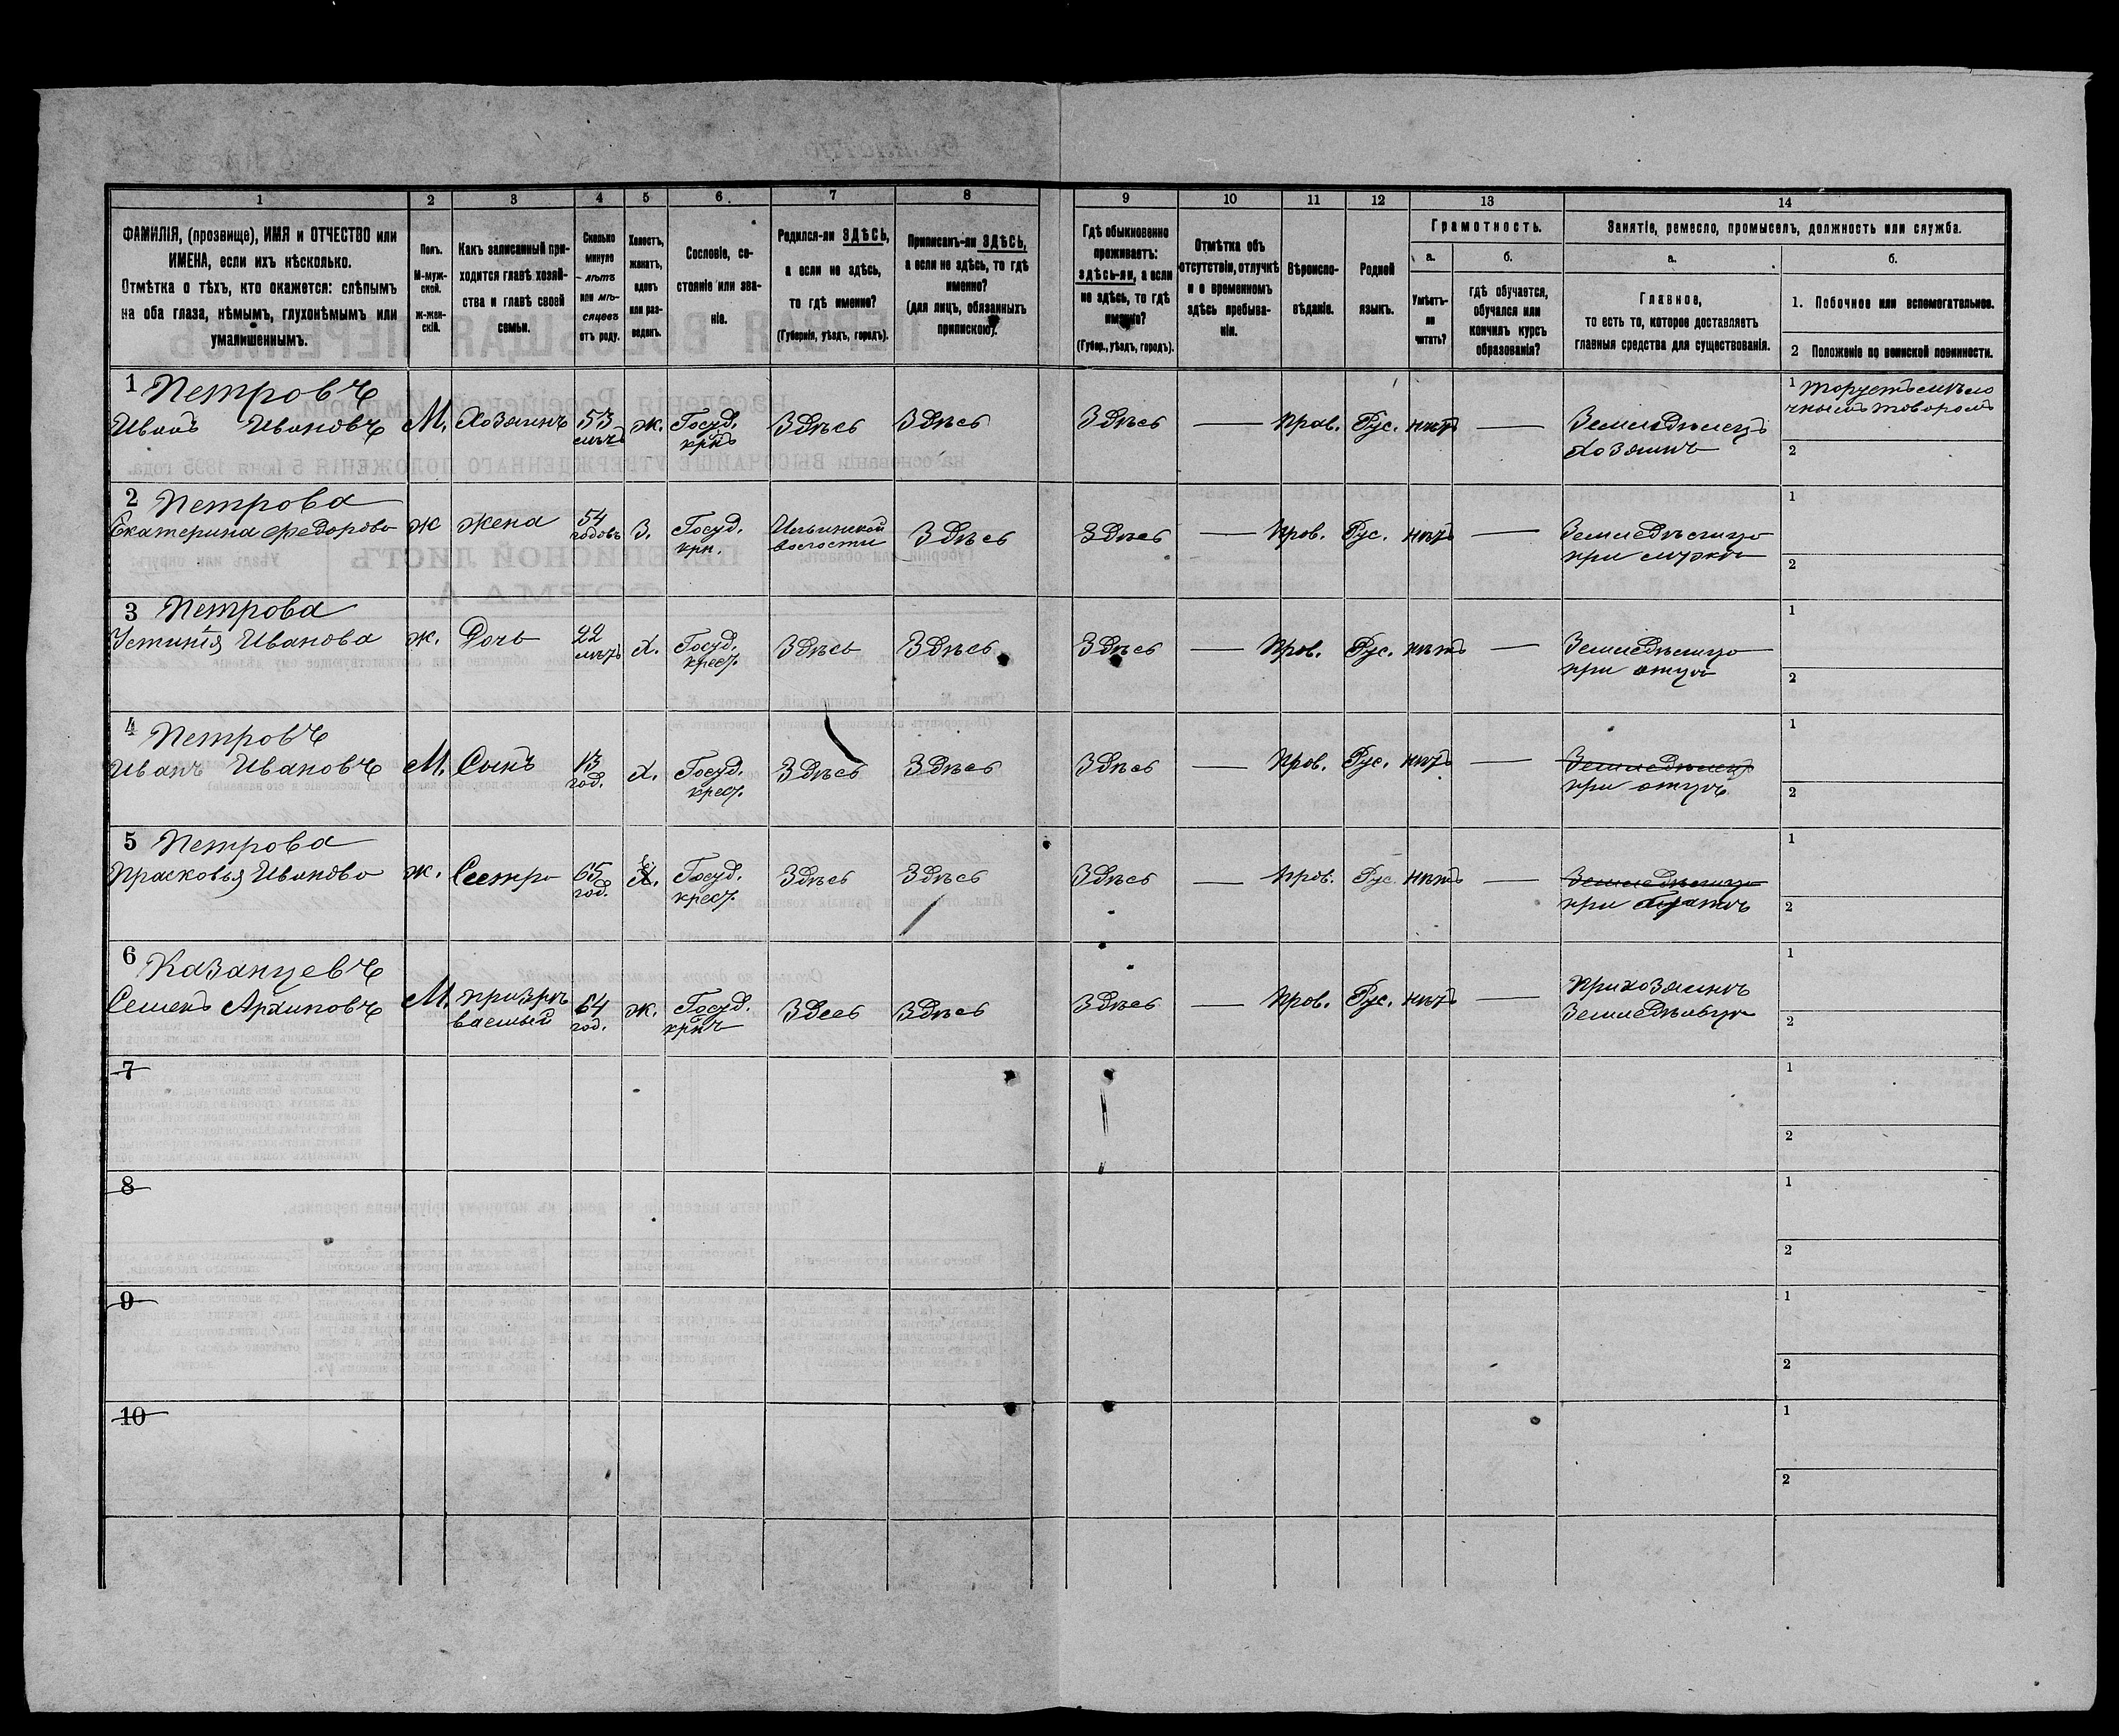 1 2 3 4 5 6 7 8 9 10 11 12 13 14
ФАМИЛІЯ, (прозвище), ИМЯ и ОТЧЕСТВО или
ИМЕНА, если ихъ нѣсколько.
Отмѣтка о тѣхъ, кто окажется: слѣпымъ
на оба глаза, нѣмымъ, глухонѣмымъ или
умалишеннымъ.
Полъ.
М-муж-
ской.
Ж-жен-
скій.
Какъ записанный при-
ходится главѣ хозяй-
ства и главѣ своей
семьи.
Сколько
минуло
лѣтъ
или мѣ-
сяцевъ
отъ роду.
Холостъ,
женатъ,
вдовъ
или раз-
веденъ.
Сословіе, со-
стояніе или зва-
ніе.
Родился-ли ЗДѢСЬ,
а если не здѣсь,
то гдѣ именно?
(Губернія, уѣздъ, городъ).
Приписанъ-ли ЗДѢСЬ,
а если не здѣсь, то гдѣ
именно?
(для лицъ, обязанныхъ
припискою).
Гдѣ обыкновенно
проживаетъ:
здѣсь-ли, а если
не здѣсь, то гдѣ
именно?
(Губер., уѣздъ, городъ).
Отмѣтка объ
отсутствіи, отлучкѣ
и о временномъ
здѣсь пребыва-
ніи.
Вѣроиспо-
вѣданіе.
Родной
языкъ.
Грамотность.
а.
Умѣетъ-
ли
читать?
б.
гдѣ обучается,
обучался или
кончилъ курсъ
образованія?
Занятіе, ремесло, промыселъ, должность или служба.
а.
Главное,
то есть то, которое доставляетъ
главныя средства для существованія.
б.
1. Побочное или вспомогательное.
2 Положеніе по воинской повинности.
1 Петровъ
Иванъ Ивановъ М. Хозяинъ 53 лѣтъ ж. Госуд. Здѣсь Здѣсь Здѣсь — Прав. Рус. нѣтъ — Земледѣлецъ
хозяинъ
1 торгуетъ мѣло
чнымъ товаромъ
2
2 Петрова
Екатерина Федорова ж жена 54 годовъ З. Госуд. крн. Ильинской волости Здѣсь Здѣсь — Прав. Рус. нѣтъ — Земледѣлица
при мужѣ
1
2
3 Петрова
Устинія Иванова ж. Дочь 22 лѣтъ Х. Госуд. крест. Здѣсь Здѣсь Здѣсь — Прав. Рус. нѣтъ — Земледѣлица
при отцѣ
1
2
4 Петровъ
Иванъ Ивановъ М. Сынъ 13 год. Х. Госуд. крест. Здѣсь Здѣсь Здѣсь — Прав. Рус. нѣтъ — Земледѣлецъ
при отцѣ
1
2
5 Петрова
Прасковья Иванова ж. Сестра 65 год. Х. Госуд. крест. Здѣсь Здѣсь Здѣсь — Прав. Рус. нѣтъ — Земледѣлица
при братѣ
1
2
6 Казанцевъ
Семенъ Архиповъ М. призрѣ
ваемый 64 год. ж. Госуд. Здесь Здѣсь Здѣсь — Прав. Рус. нѣтъ — При хозяинѣ
1
2
7
1
2
8
1
2
9
1
2
10
1
2